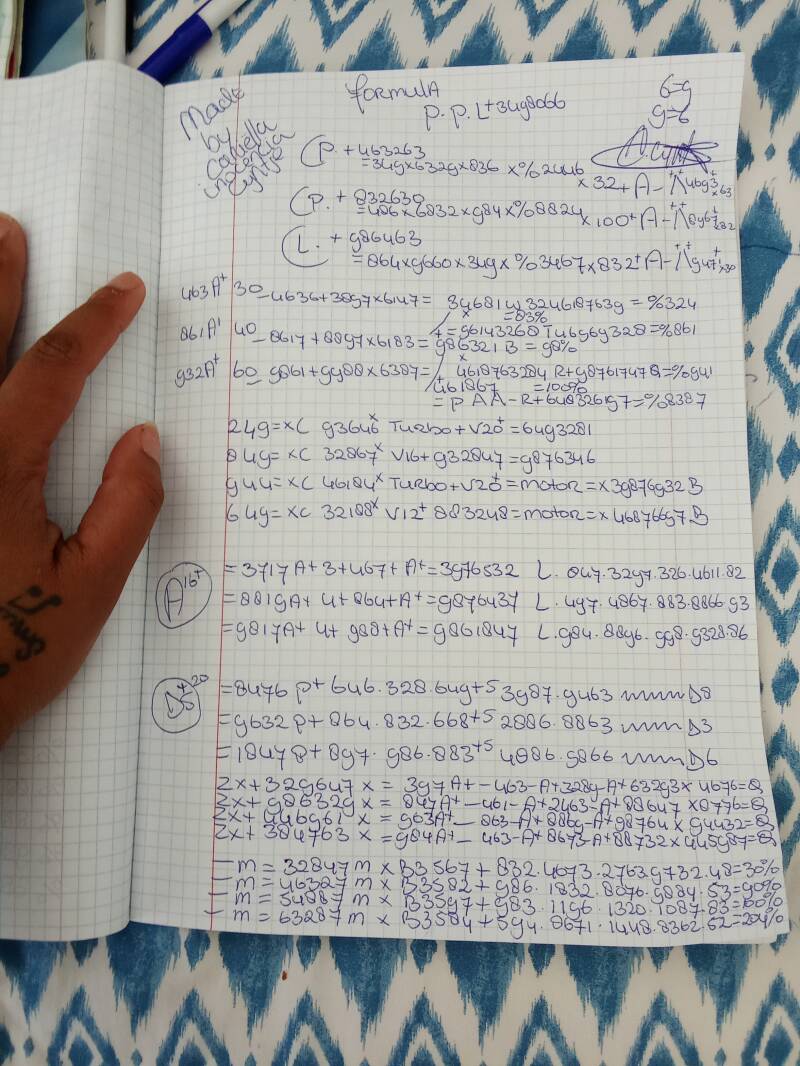 formulA
P. P. L+3498066
6=g
g=6
Made
by
Cyntje
(P. + 463263
=349x6329x836 x%2446
x32+A-
(P. + 832630
=486x6832x984x%8824
x100+A-
(L. + 986463
=864x9660x349x%3467x832+A-
463A+ 30-4636+3897x6147= 34681W3246187639=%324
=83%
861A+ 40-8617+8897x6183=
986321B=98%
932A+ 60-9861+9988x6387=
4618763284R+98761747Q=%941
461867 =100%
=PAA-R+648326197=%8387
249=xC 93646x Turbo+V20+=6493281
849=xC 32867x V16+932847=9876346
944=xC 46184x Turbo+V20+=motor=x39876932B
649=xC 32188x V12+883248=motor=x46876697B
A16+ =3717A+3+467+A+=3976532 L.847.3297.326.4611.82
=8819A+4+864+A+=9876437 L.497.4867.883.8866.93
=9817A+4+988+A+=9861847 L.984.8896.998.9328.86
=8476P+646.328.649+5 3987.9463 D8
=9632P+864.832.668+5 2886.8863 D3
=1847P+897.986.883+5 4086.9866 D6
2x+329647x=397A+-463-A+3289-A+63293x4676=Q
3x+986329x=847A+-461-A+2463-A+88647x8776=Q
2x+446961x=963A+-863-A+8869-A+98764x94432=Q
2x+384763x=984A+-463-A+8673-A+88732x445987=Q
-m=32847mxB3567+832.4673.2763.9732.48=30%
-m=46327mxB3582+986.1832.8076.9884.53=90%
-m=54887mxB3597+983.1196.1320.1087.83=100%
-m=63287mxB3584+594.8671.1448.8362.52=204%